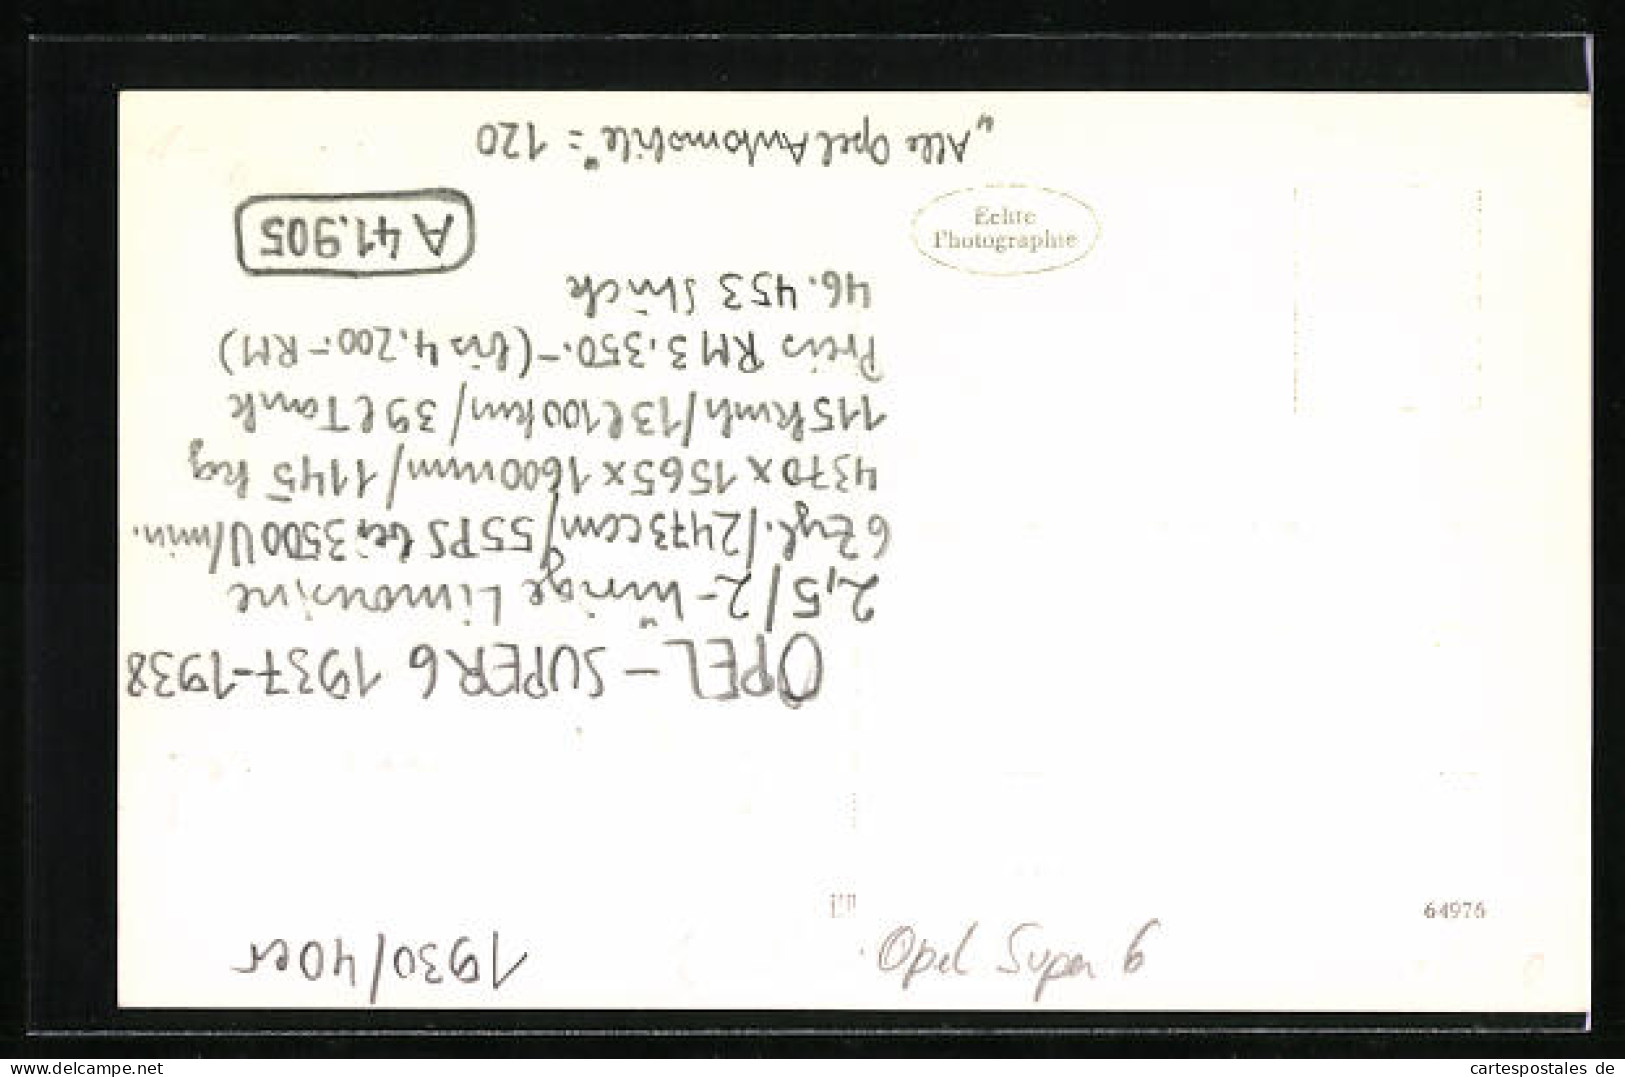 1930/40er
OPEL - SUPER 6 1937-1938
2,5/2-türige Limousine
6 Zyl./2473ccm/55PS bei 3500 U/min.
4370 x 1565 x 1600mm/1145 kg
115 kmh/13 l 100km/39 l Tank
Preis RM 3.350.- (bis 4.200.- RM)
46.453 Stück
A 41.905
„Alle Opel Automobile“ = 120
Echte
Photographie
64976
Opel Super 6
www.delcampe.net
cartespostales de